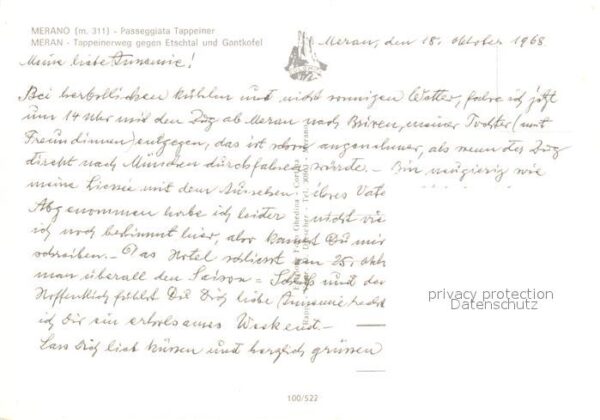 MERANO (m. 311) - Passeggiata Tappeiner
MERAN - Tappeinerweg gegen Etschtal und Gantkofel
Meran, den 18. Oktober 1968
Meine liebe Annemie!
Bei herbstlichem kühlen und nicht sonnigen Wetter, fahre ich jetzt
um 14 Uhr mit den Zug ab Meran nach Brixen, meiner Tochter (mit
Freundinnen) entgegen, das ist schon angenehmer, als wenn der Zug
direkt nach München durchfahren würde. - Bin neugierig wie
meine Liesie mit dem Aussehen ihres Vate
Abgenommen habe ich leider nicht vie
ich noch bestimmt hier, also kannst Du mir
schreiben. - Das Hotel schliesst am 25. Okt.
man überall den Saison = Schluß und der
Hoffentlich fühlst Du Dich liebe Annemie
ich Dir ein erholsames Weekend. -
Lass Dich lieb küssen und herzlich grüssen
privacy protection
Datenschutz
100/522